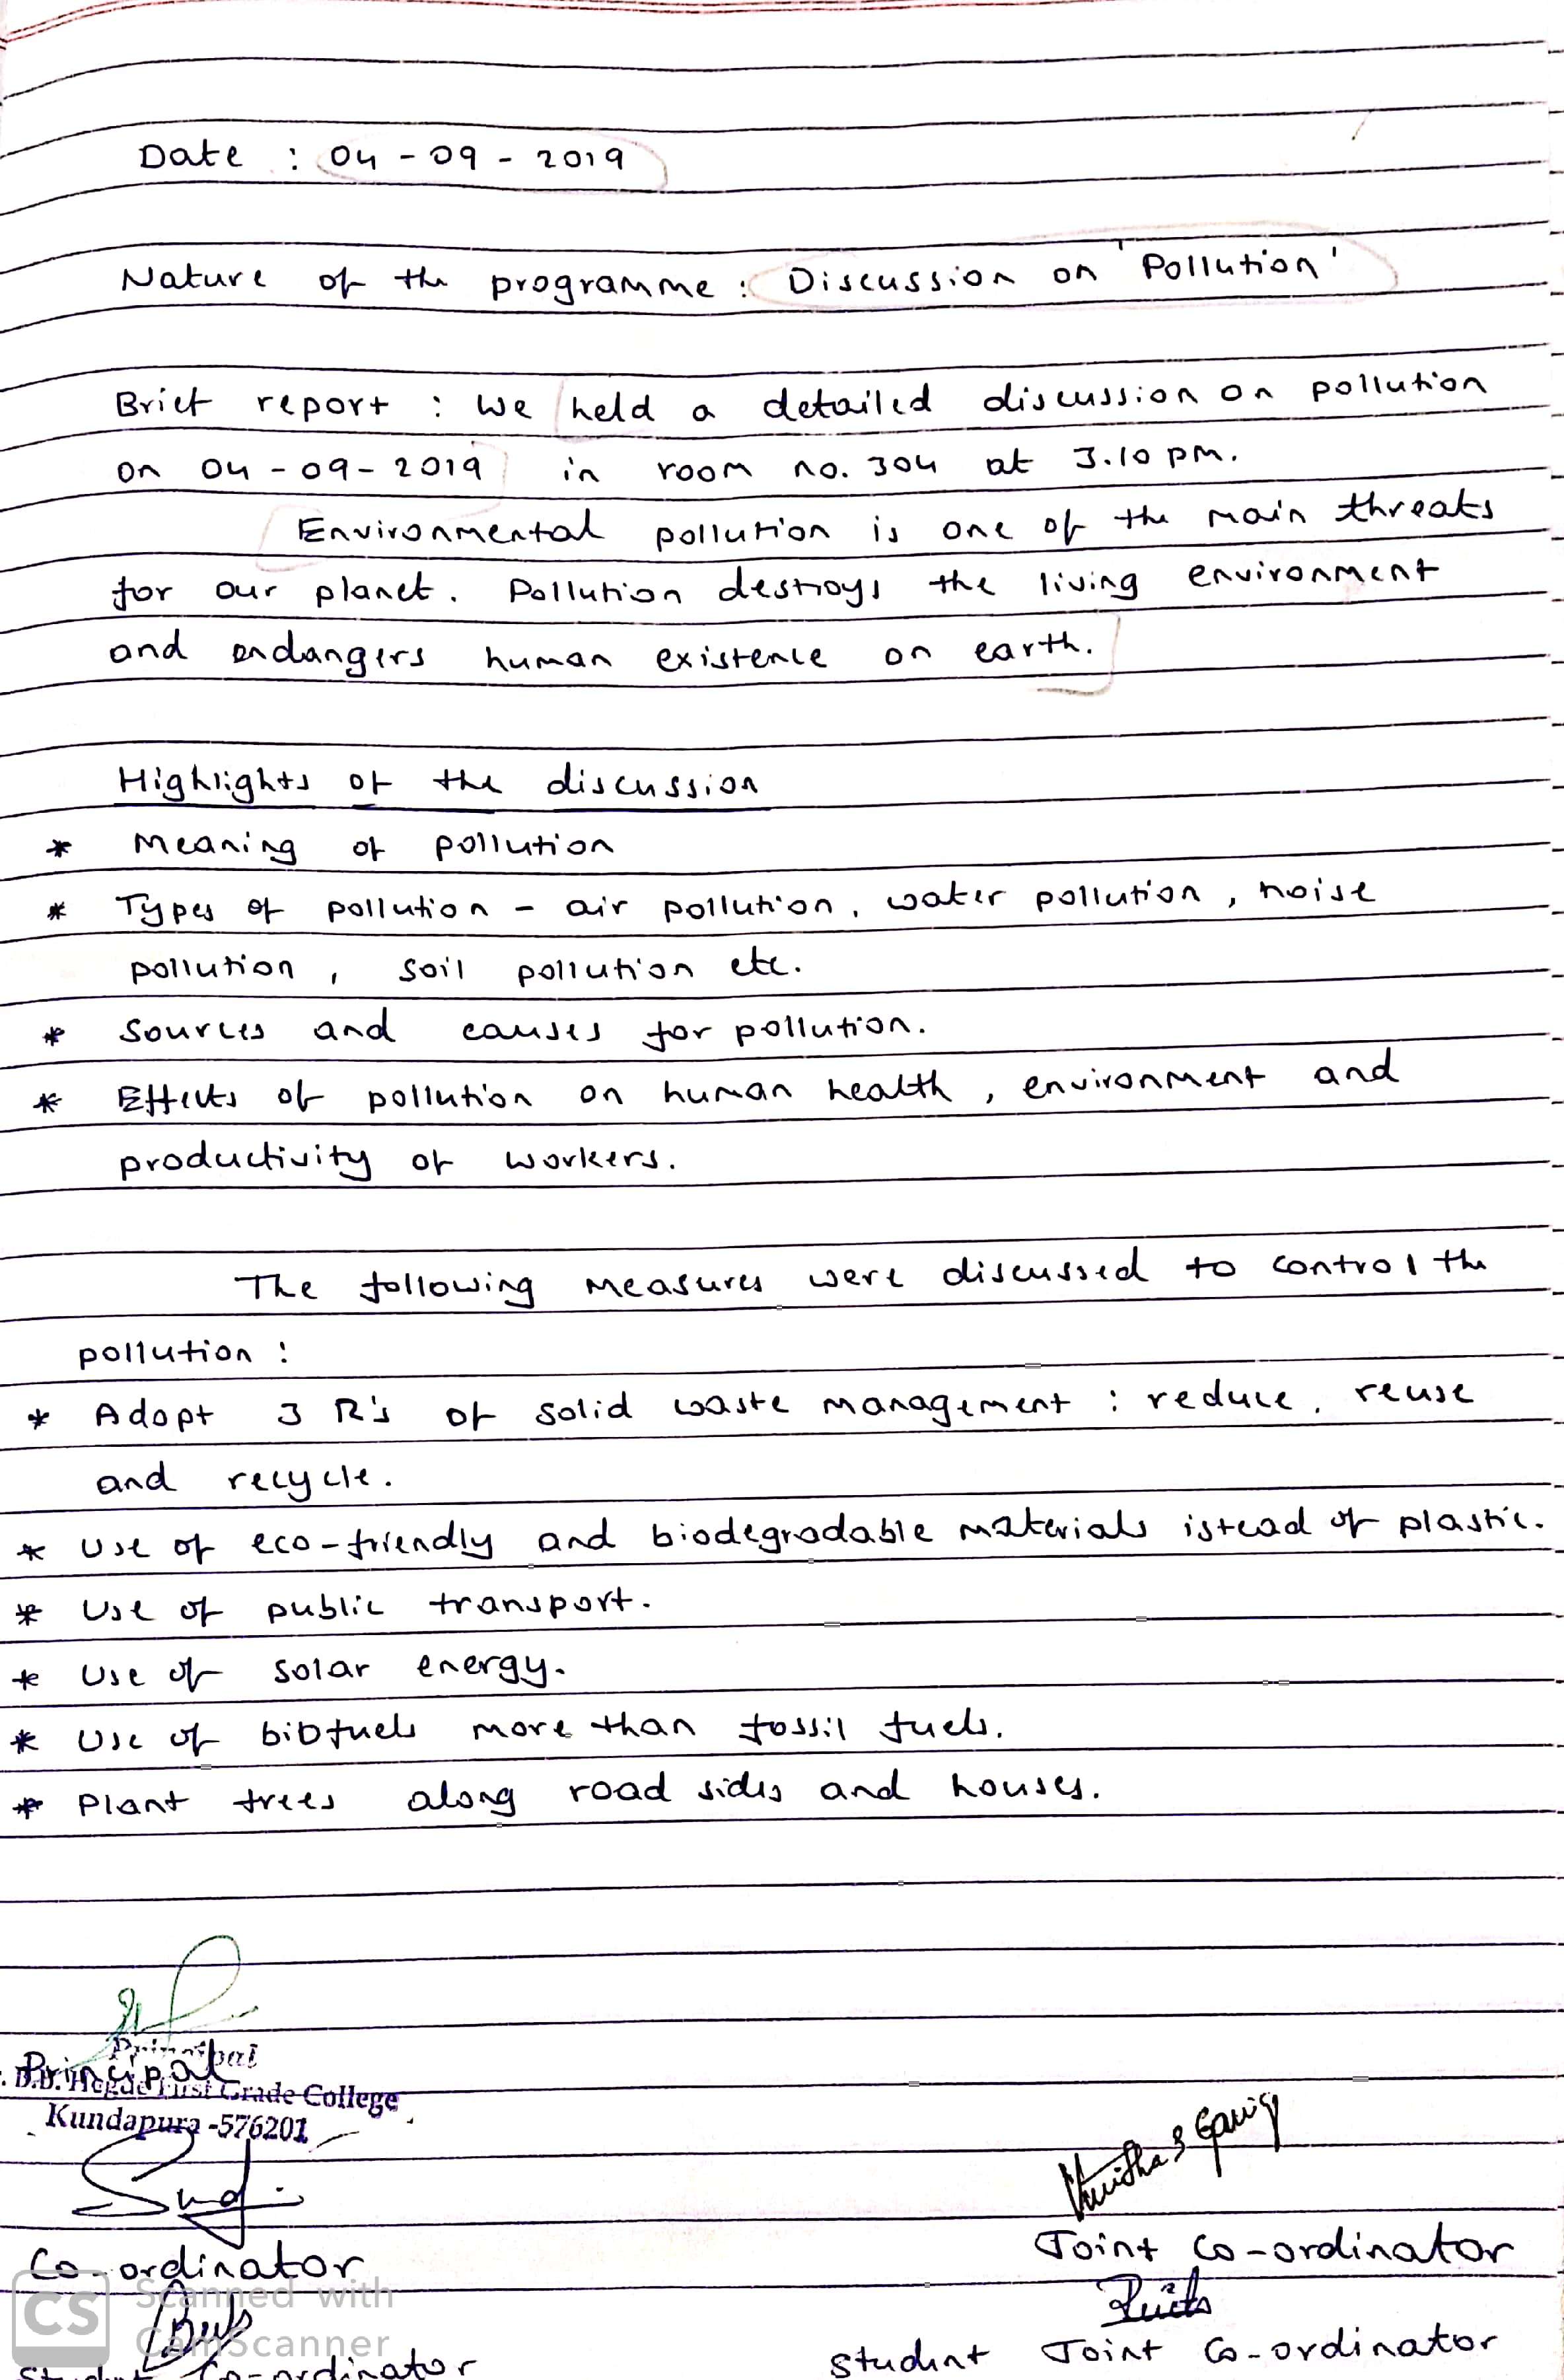 Date : 04 - 09 - 2019
Nature of the programme : Discussion on 'Pollution'
Brief report : We held a detailed discussion on pollution
on 04 - 09 - 2019 in room no. 304 at 3.10 pm.
Environmental pollution is one of the main threats
for our planet. Pollution destroys the living environment
and endangers human existence on earth.
Highlights of the discussion
* Meaning of pollution
* Types of pollution - air pollution, water pollution, noise
pollution, soil pollution etc.
* Sources and causes for pollution.
* Effects of pollution on human health, environment and
productivity of workers.
The following measures were discussed to control the
pollution :
* Adopt 3 R's of solid waste management : reduce, reuse
and recycle.
* Use of eco-friendly and biodegradable materials istead of plastic.
* Use of public transport.
* Use of solar energy.
* Use of biofuels more than fossil fuels.
* Plant trees along road sides and houses.
Principal
Principal
B.B. Hegde First Grade College
Kundapura -576201
Co-ordinator
Joint Co-ordinator
CS Scanned with
CamScanner
Student Joint Co-ordinator
Student Co-ordinator